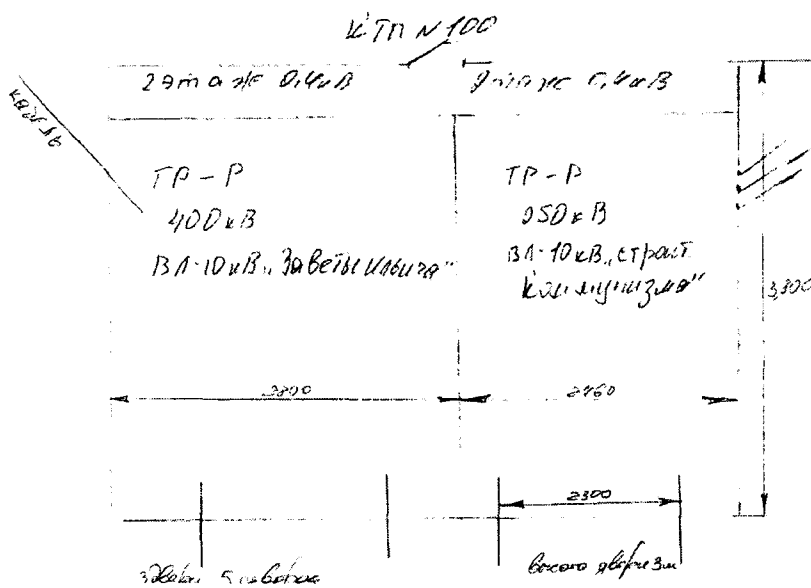 КТП N 100
2 этаж 0,4кВ
2 этаж 0,4кВ
кабель
ТР-Р
400кВ
ВЛ-10кВ „Заветы Ильича"
ТР-Р
250кВ
ВЛ-10кВ „строит
коммунизма"
3,800
3800
2760
2300
высота двери 3м